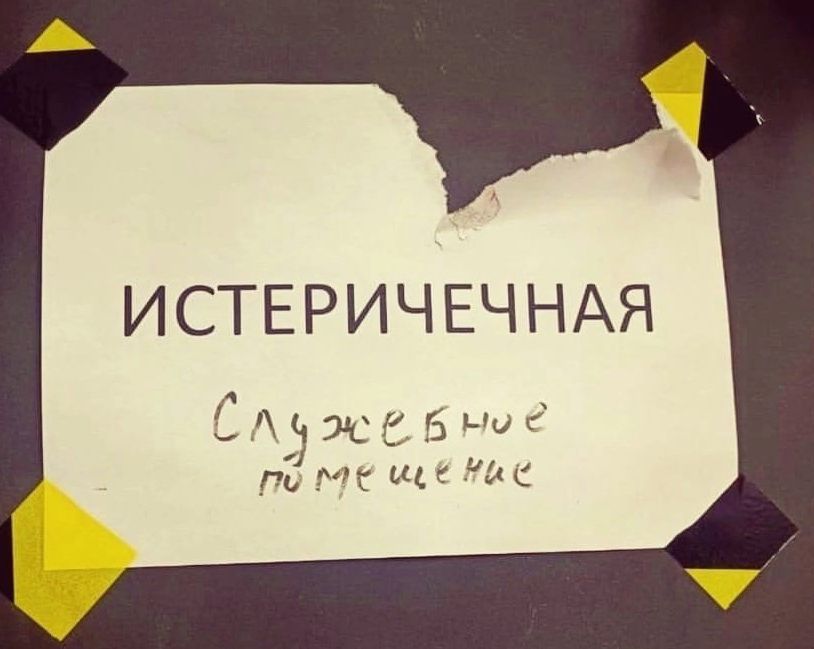 ИСТЕРИЧЕЧНАЯ
Служебное
помещение